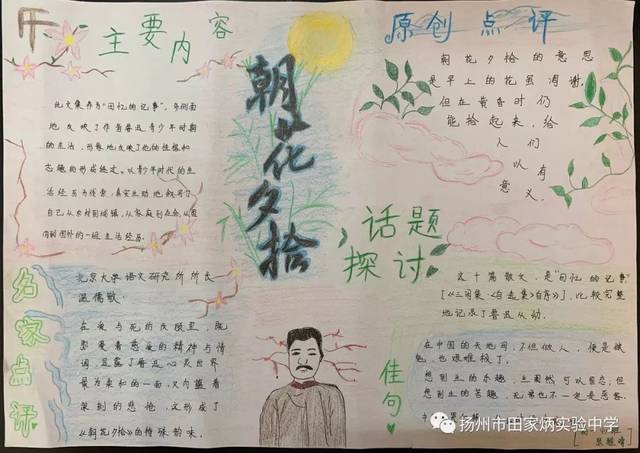 主要内容
此文集作为"回忆的记事",多侧面
地反映了作者鲁迅青少年时期
的生活,形象地反映了他的性格和
志趣的形成经过。以青少年时代的生
活经历为线索,真实生动地叙写了
自己从农村到城镇,从家庭到社会,从国
内到国外的一组生活经历。
朝花夕拾
原创点评
朝花夕拾的意思
是早上的花虽凋谢,
但在黄昏时们
能拾起来,给
人们
以有
意义.
话题
探讨
这十篇散文,是"回忆的记事"
[《三闲集·<自选集>自序》],比较完整
地记录了鲁迅从幼.
名家点评
北京大学语文研究所所长
温儒敏:
在爱与死的反顾里,既
弥漫着慈爱的精神与情
调,显露了鲁迅心灵世界
最为柔和的一面,又内蕴着
深刻的悲怆,文形成了
《朝花夕拾》的特殊韵味。
佳句
在中国的天地间,不但做人,便是做
鬼,也艰难极了。
想到生的乐趣,生固然可以留恋;但
想到生的苦趣,无常也不一定是恶客.
扬州市田家炳实验中学